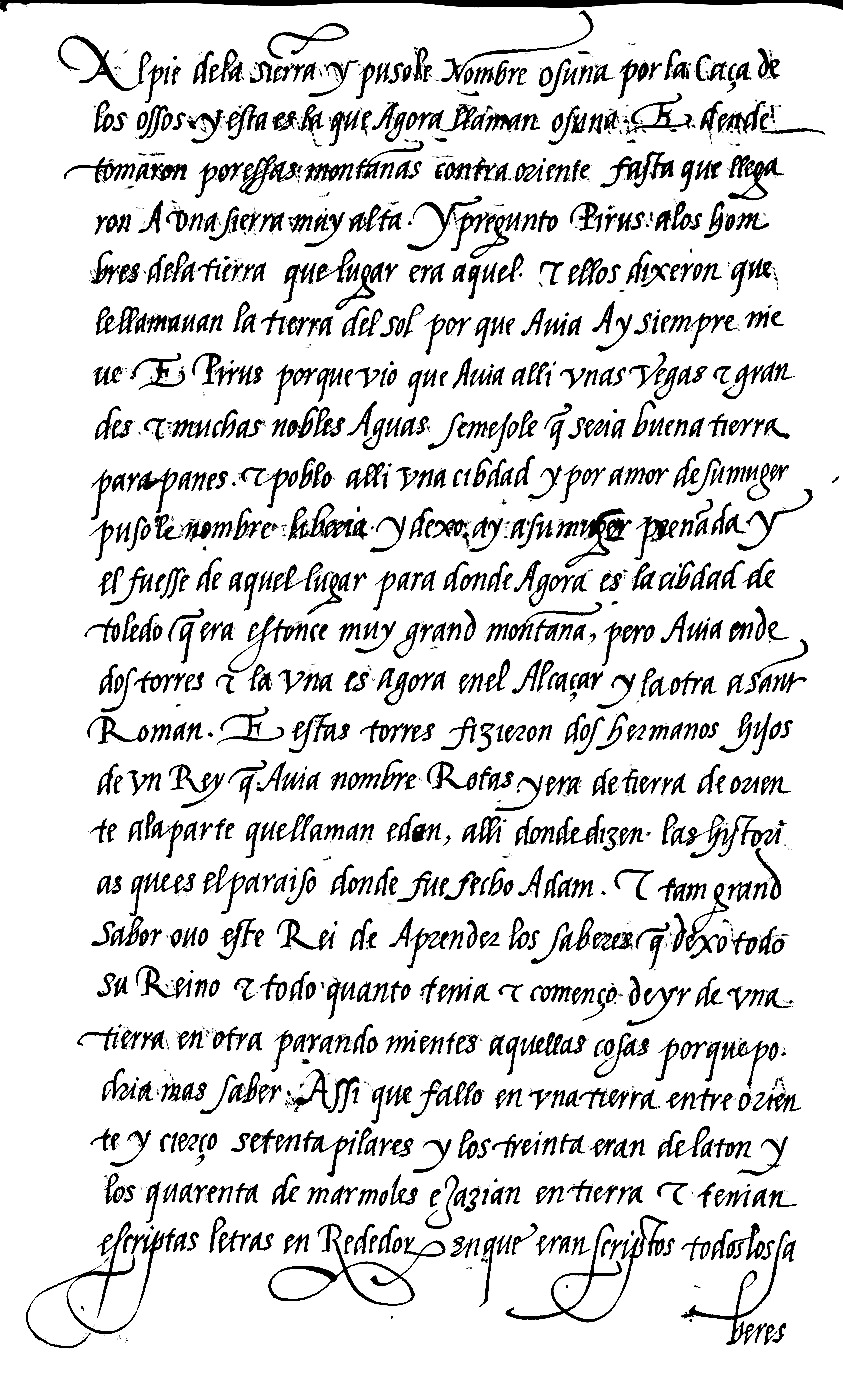 Al pie dela sierra y pusole Nombre osuna por la Caça de
los ossos y esta es la que Agora llaman osuna. E dende
tomaron por essas montañas contra oriente fasta que llega
ron A vna sierra muy alta. Y pregunto Pirus alos hom
bres dela tierra que lugar era aquel. τ ellos dixeron que
le llamauan la tierra del sol por que Auia Ay siempre nie
ue E Pirus porque vio que Auia alli vnas Vegas τ gran
des τ muchas nobles Aguas. semejole q̃ seria buena tierra
para panes. τ poblo alli vna cibdad y por amor de su muger
pusole nombre liberia. y dexo ay a su muger preñada y
el fuesse de aquel lugar para donde Agora es la cibdad de
toledo q̃ era estonce muy grand montaña, pero Auia ende
dos torres τ la vna es agora enel Alcaçar y la otra a sant
Roman. E estas torres fizieron dos hermanos hijos
de vn Rey q̃ Auia nombre Rotas y era de tierra de orien
te ala parte que llaman eden, alli donde dizen las histori
as que es el paraiso donde fue fecho Adam. τ tam grand
sabor ouo este Rei de Aprender los saberes q̃ dexo todo
su Reino τ todo quanto tenia τ començo de yr de vna
tierra en otra parando mientes aquellas cosas porque po
dria mas saber. Assi que fallo en vna tierra entre orien
te y cierço setenta pilares y los treinta eran de laton y
los quarenta de marmoles e jazian en tierra τ tenian
escriptas letras en Rededor en que eran scriptos todos los sa
beres